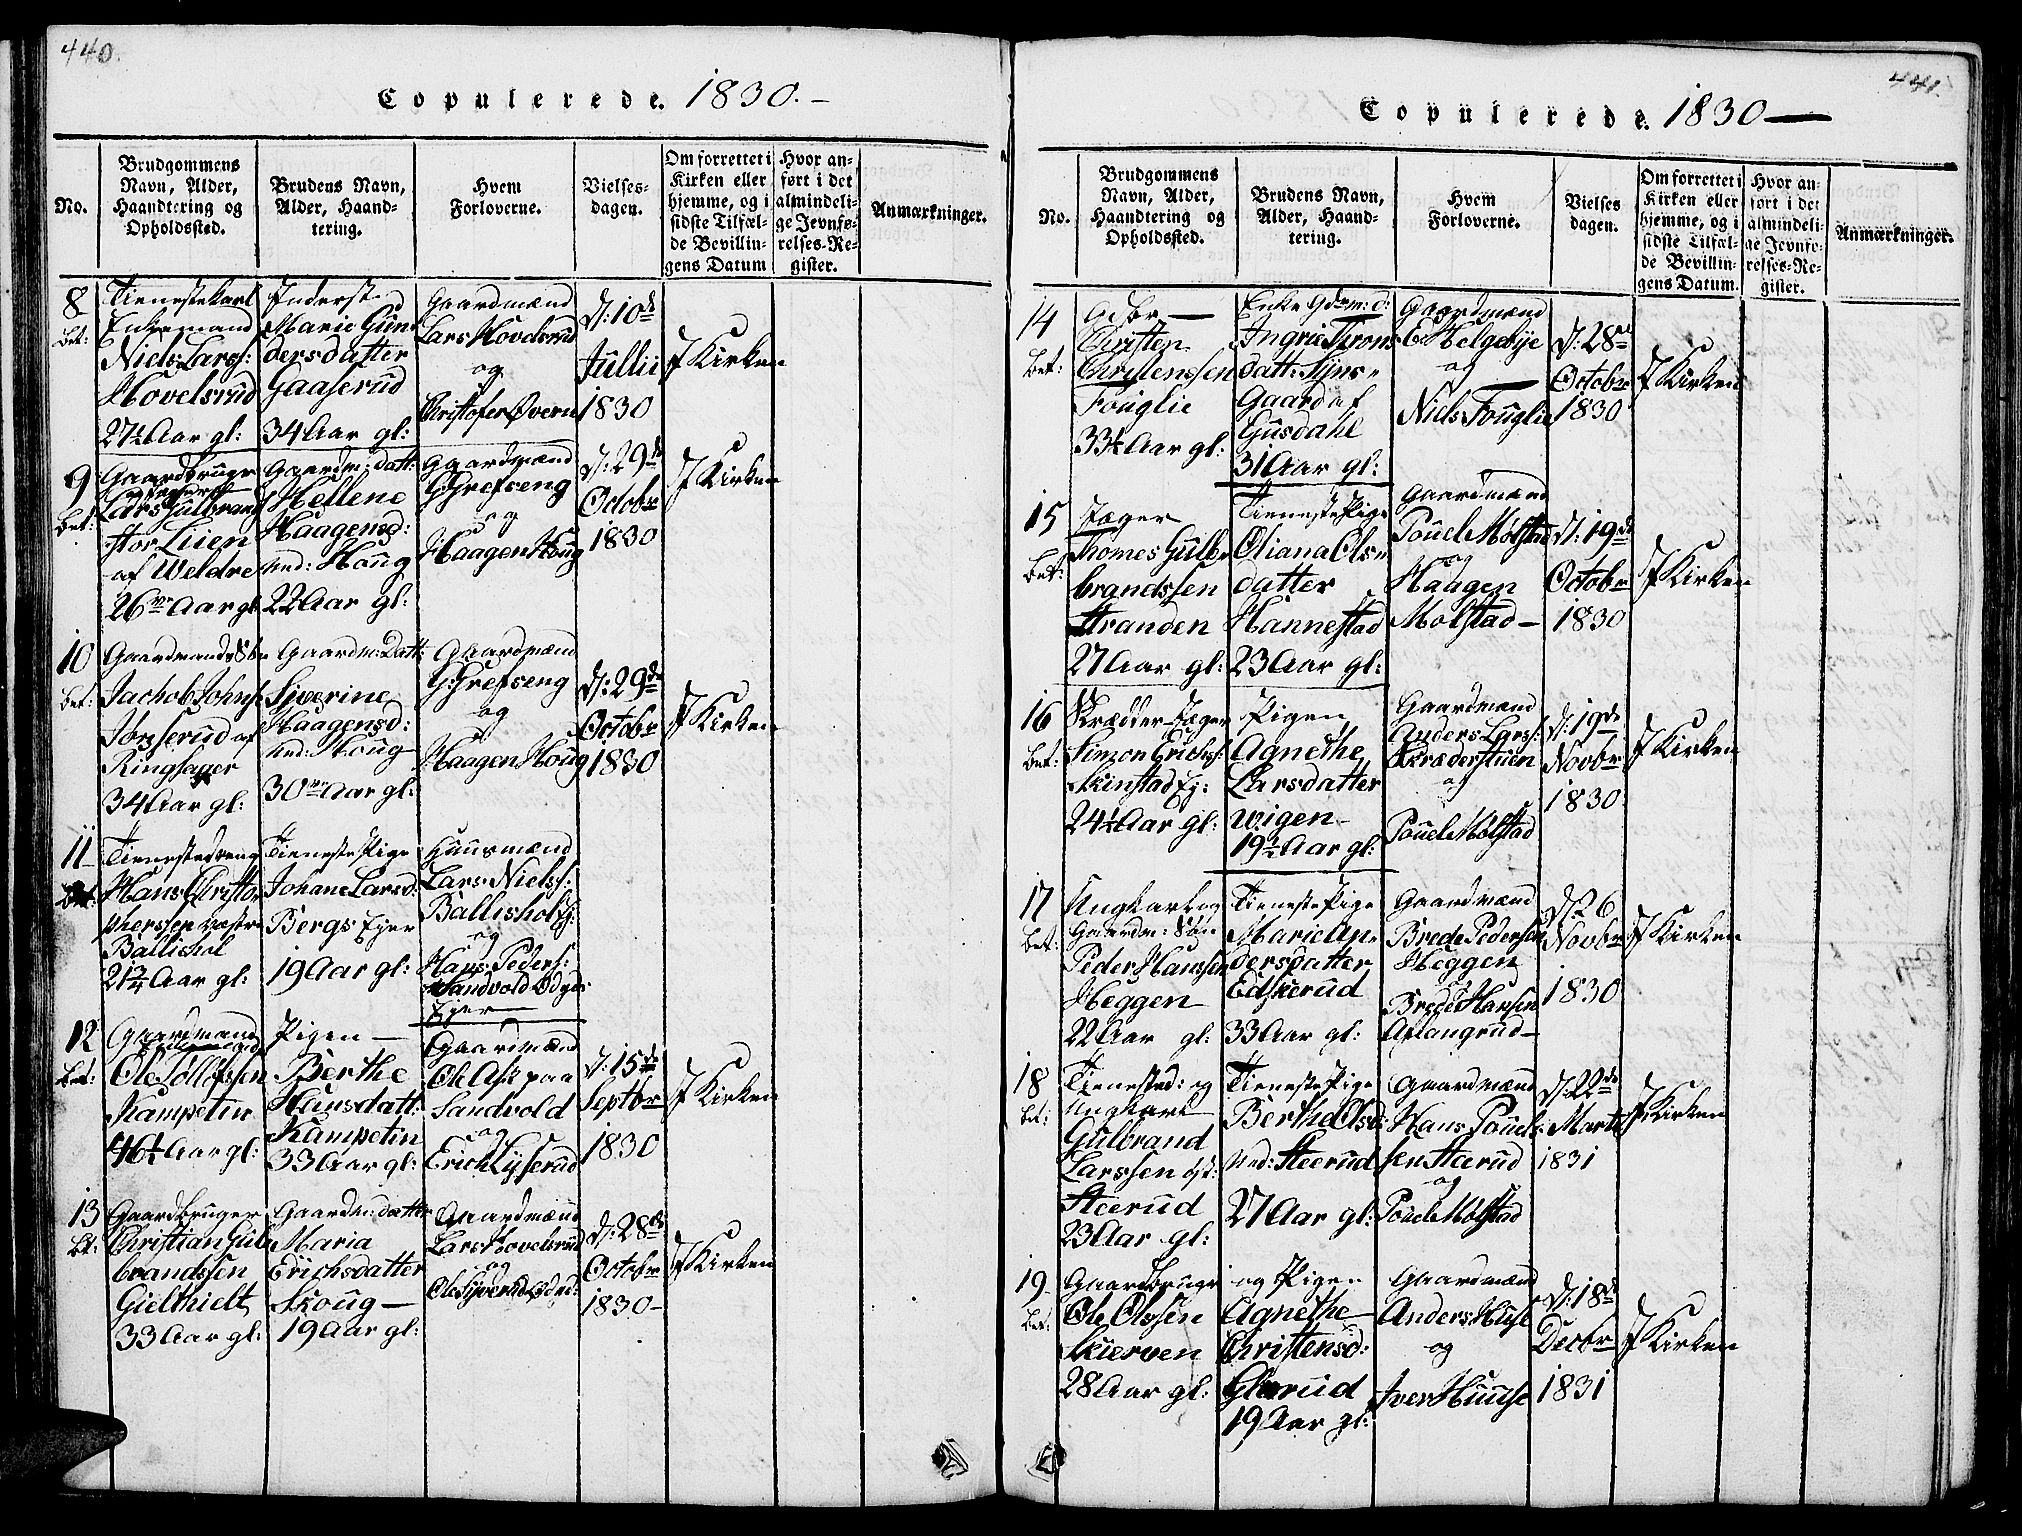 440.
Copulerede. 1830. –
No.
Brudgommens
Navn, Alder,
Haandtering og
Opholdssted.
Brudens Navn,
Alder, Haand-
tering.
Hvem
Forloverne.
Vielses-
dagen.
Om forrettet i
Kirken eller
hjemme, og i
sidste Tilfæl-
de Bevillin-
gens Datum
Hvor an-
ført i det
almindeli-
ge Jevnfø-
relses-Re-
gister.
Anmærkninger.
8
bet:
Tienestekarl
Enkemand
Niels Larss:
Hovelsrud
27½ Aar gl:
Inderst
Marie Gun
dersdatter
Gaaserud
34 Aar gl:
Gaardmænd
Lars Hovelsrud
og
Christofer Øveru
d: 10de
Jullii
1830
I Kirken
9
bet:
Gaardbruger
Lars Gulbrands
stor Liien
af Weldre
26 Aar gl
Gaardm: datt:
Hellene
Haagensd:
ned: Houg
22 Aar gl:
Gaardmænd
G: Grefseng
og
Haagen Houg
d: 29de
Octobr
1830
I Kirken
10
bet:
Gaardmands Søn
Jachob Johns:
Jørsserud af
Ringsager
34 Aar gl:
Gaardm: Datt:
Siverine
Haagensd:
ned: Houg
30 Aar gl:
Gaardmænd
G: Grefseng
og
Haagen Houg
d: 29de
Octobr
1830
I Kirken
11
bet:
Tienestedreng
Hans Christo
phersen væstre
Ballishol
21¾ Aar gl:
Tieneste Pige
Johane Larsd:
Bergs Ejer
19 Aar gl:
Huusmænd
Lars Nielss:
Ballishol Ej:
og
Hans Peders:
Sandvold Ødg:
Ejer
12
bet:
Gaardmand
Ole Lølløfssen
Kampetin
46½ Aar gl:
Pigen –
Berthe
Hansdatt:
Kampetin
33 Aar gl:
Gaardmænd
Ole Ask paa
Sandvold
og
Erich Lyserud
d: 15de
Septbr
1830
I Kirken
13
bt:
Gaardbruger
Christian Gul
brandssen
Gielthielt
33 Aar gl:
Gaardm: datter
Maria
Erichsdatter
Skoug –
19 Aar gl:
Gaardmænd
Lars Hovelsrud
og
Ole Siverud
d: 28de
Octobr
1830 –
I Kirken
441.
Copulerede. 1830 –
No.
Brudgommens
Navn, Alder,
Haandtering og
Opholdssted.
Brudens Navn,
Alder, Haand-
tering.
Hvem
Forloverne.
Vielses
dagen.
Om forrettet i
Kirken eller
hjemme, og i
sidste Tilfæl-
de Bevillin-
gens Datum.
Hvor an-
ført i det
almindeli-
ge Jevnfø-
relses-Re-
gister.
Anmærkninger.
14
bet:
Christen
Christenssen
Fouglie
33½ Aar gl:
Enke Gdm: d:
Ingrie Trons
datt: Syns
Gaard af
Gusdahl
31 Aar gl:
Gaardmænd
E: Helgebye
og
Niels Fouglie
d: 28de
Octobr
1830
I Kirken
15
bet:
Jæger
Thomes Gulb
brandssen
Stranden
27 Aar gl:
Tieneste Pige
Oliana Ols
datter
Hannestad
23 Aar gl:
Gaardmænd
Pouel Mølstad
og
Haagen
Molstad –
d: 19de
Octobr
1830
I Kirken
16
bet:
Skrædder Jæger
Simon Erichs:
Skinstad Ej:
24½ Aar gl:
Pigen
Agnethe
Larsdatter
wigen
19½ Aar gl:
Gaardmænd
Anders Larss:
Skræderstuen
og
Pouel Mølstad
d: 19de
Novbr
1830
I Kirken
17
bet:
Ungkarl og
Gaardm: Søn
Peder Hanssen
Heggen
22 Aar gl:
Tieneste Pige
Marie An
dersdatter
Edskerud
33 Aar gl:
Gaardmænd
Brede Pedersen
Heggen
Brede Hansen
Aflangrud –
d: 26
Novbr
1830
I Kirken
18
bet:
Tienested: og
Ungkarl
Gulbrand
Larssen øst:
Steerud
23 Aar gl:
Tieneste Pige
Berthe Olsd:
Ned: Steerud
27 Aar gl:
Gaardmænd
Hans Pouels
sen Steerud
og
Pouel Mølstad
d: 22de
Marts
1831
I Kirken
19
bet:
Gaardbruger
Ole Olssen
Skierven
28 Aar gl:
og Pigen
Agnethe
Christensd:
Glorud
19 Aar gl:
Gaardmænd
Anders Huse
og
Iver Huuse
d: 18de
Decbr
1831
I Kirken